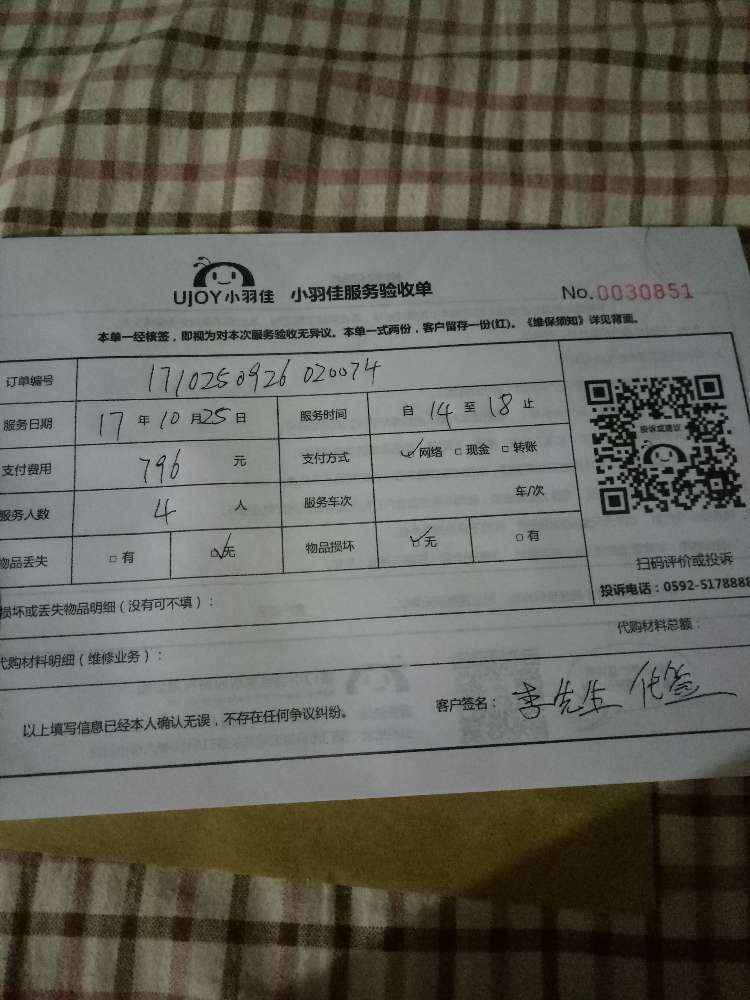 UJOY小羽佳 小羽佳服务验收单 No.0030851
本单一经核签，即视为对本次服务验收无异议。本单一式两份，客户留存一份(红)。《维保须知》详见背面。
订单编号 1710250926020074
服务日期 17年10月25日 服务时间 自14至18止
支付费用 796元 支付方式 ☑网络 □现金 □转账
投诉或建议
服务人数 4人 服务车次 车/次
物品丢失 □有 ☑无 物品损坏 ☑无 □有
扫码评价或投诉
投诉电话：0592-5178888
损坏或丢失物品明细（没有可不填）：
代购材料明细（维修业务）： 代购材料总额：
以上填写信息已经本人确认无误，不存在任何争议纠纷。 客户签名：李先生 代签